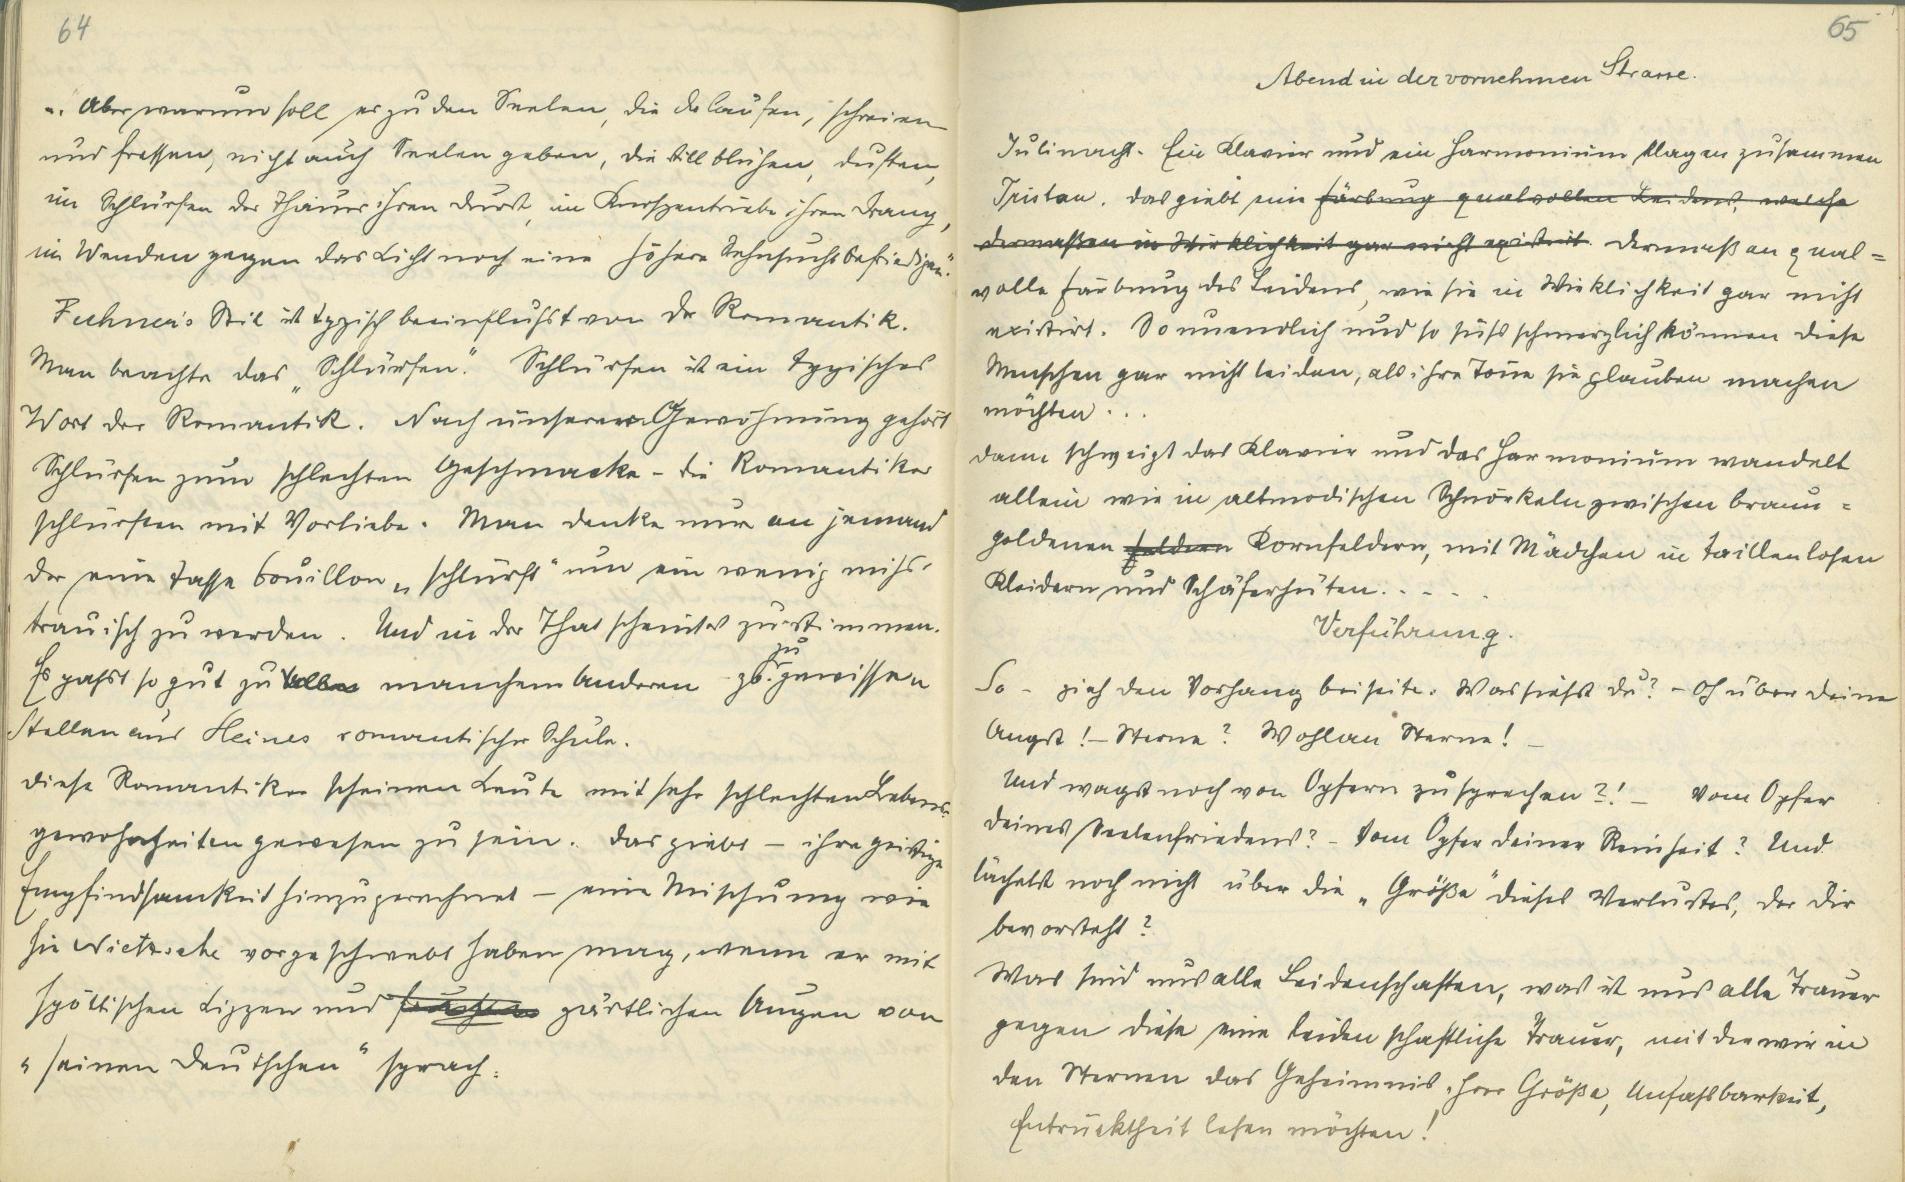 64
„. Aber warum soll es zu den Seelen, die da laufen, schreien
und fressen, nicht auch Seelen geben, die still blühen, duften,
im Schlürfen des Thaues ihren Durst, im Knospentriebe ihren Drang,
im Wenden gegen das Licht noch eine höhere Sehnsucht befriedigen.“
Fechner's Stil ist typisch beeinflußt von der Romantik.
Man beachte das „Schlürfen“. Schlürfen ist ein typisches
Wort der Romantik. Nach unserer Gewöhnung gehört
Schlürfen zum schlechten Geschmacke – die Romantiker
schlürften mit Vorliebe. Man denke nur an jemand
der eine Tasse Bouillon „schlürft“ um ein wenig miß-
trauisch zu werden. Und in der That scheint es zu stimmen.
Es passt so gut zu manchem Anderen zb. zu gewissen
Stellen aus Heines romantischer Schule.
Diese Romantiker scheinen Leute mit sehr schlechten Lebens-
gewohnheiten gewesen zu sein. Das giebt – ihre geistige
Empfindsamkeit hinzugerechnet – eine Mischung wie
sie Nietzsche vorgeschwebt haben mag, wenn er mit
spöttischen Lippen und feuchten zärtlichen Augen von
„seinen Deutschen“ sprach.
65
Abend in der vornehmen Strasse.
Julinacht. Ein Klavier und ein Harmonium klagen zusammen
Tristan. Das giebt eine Färbung qualvollen Leidens, welche
dermaßen in Wirklichkeit gar nicht existirt. dermaßen qual=
volle Färbung des Leidens, wie sie in Wirklichkeit gar nicht
existirt. So unendlich und so süß schmerzlich können diese
Menschen gar nicht leiden, als ihre Töne sie glauben machen
möchten...
Dann schweigt das Klavier und das Harmonium wandelt
allein wie in altmodischen Schnörkeln zwischen braun=
goldenen Feldern Kornfeldern, mit Mädchen in taillenlosen
Kleidern und Schäferhüten.....
Verführung.
So – zieh den Vorhang beiseite. Was siehst du? – Oh über deine
Angst! – Sterne? Wohlan Sterne! –
Und wagst noch von Opfern zu sprechen?! – Vom Opfer
deines Seelenfriedens? – Vom Opfer deiner Reinheit? Und
lächelst noch nicht über die „Größe“ dieses Verlustes, der dir
bevorsteht?
Was sind uns alle Leidenschaften, was ist uns alle Trauer
gegen diese eine leidenschaftliche Trauer, mit der wir in
den Sternen das Geheimnis ihrer Größe, Unfaßbarkeit,
Entrücktheit lesen möchten!